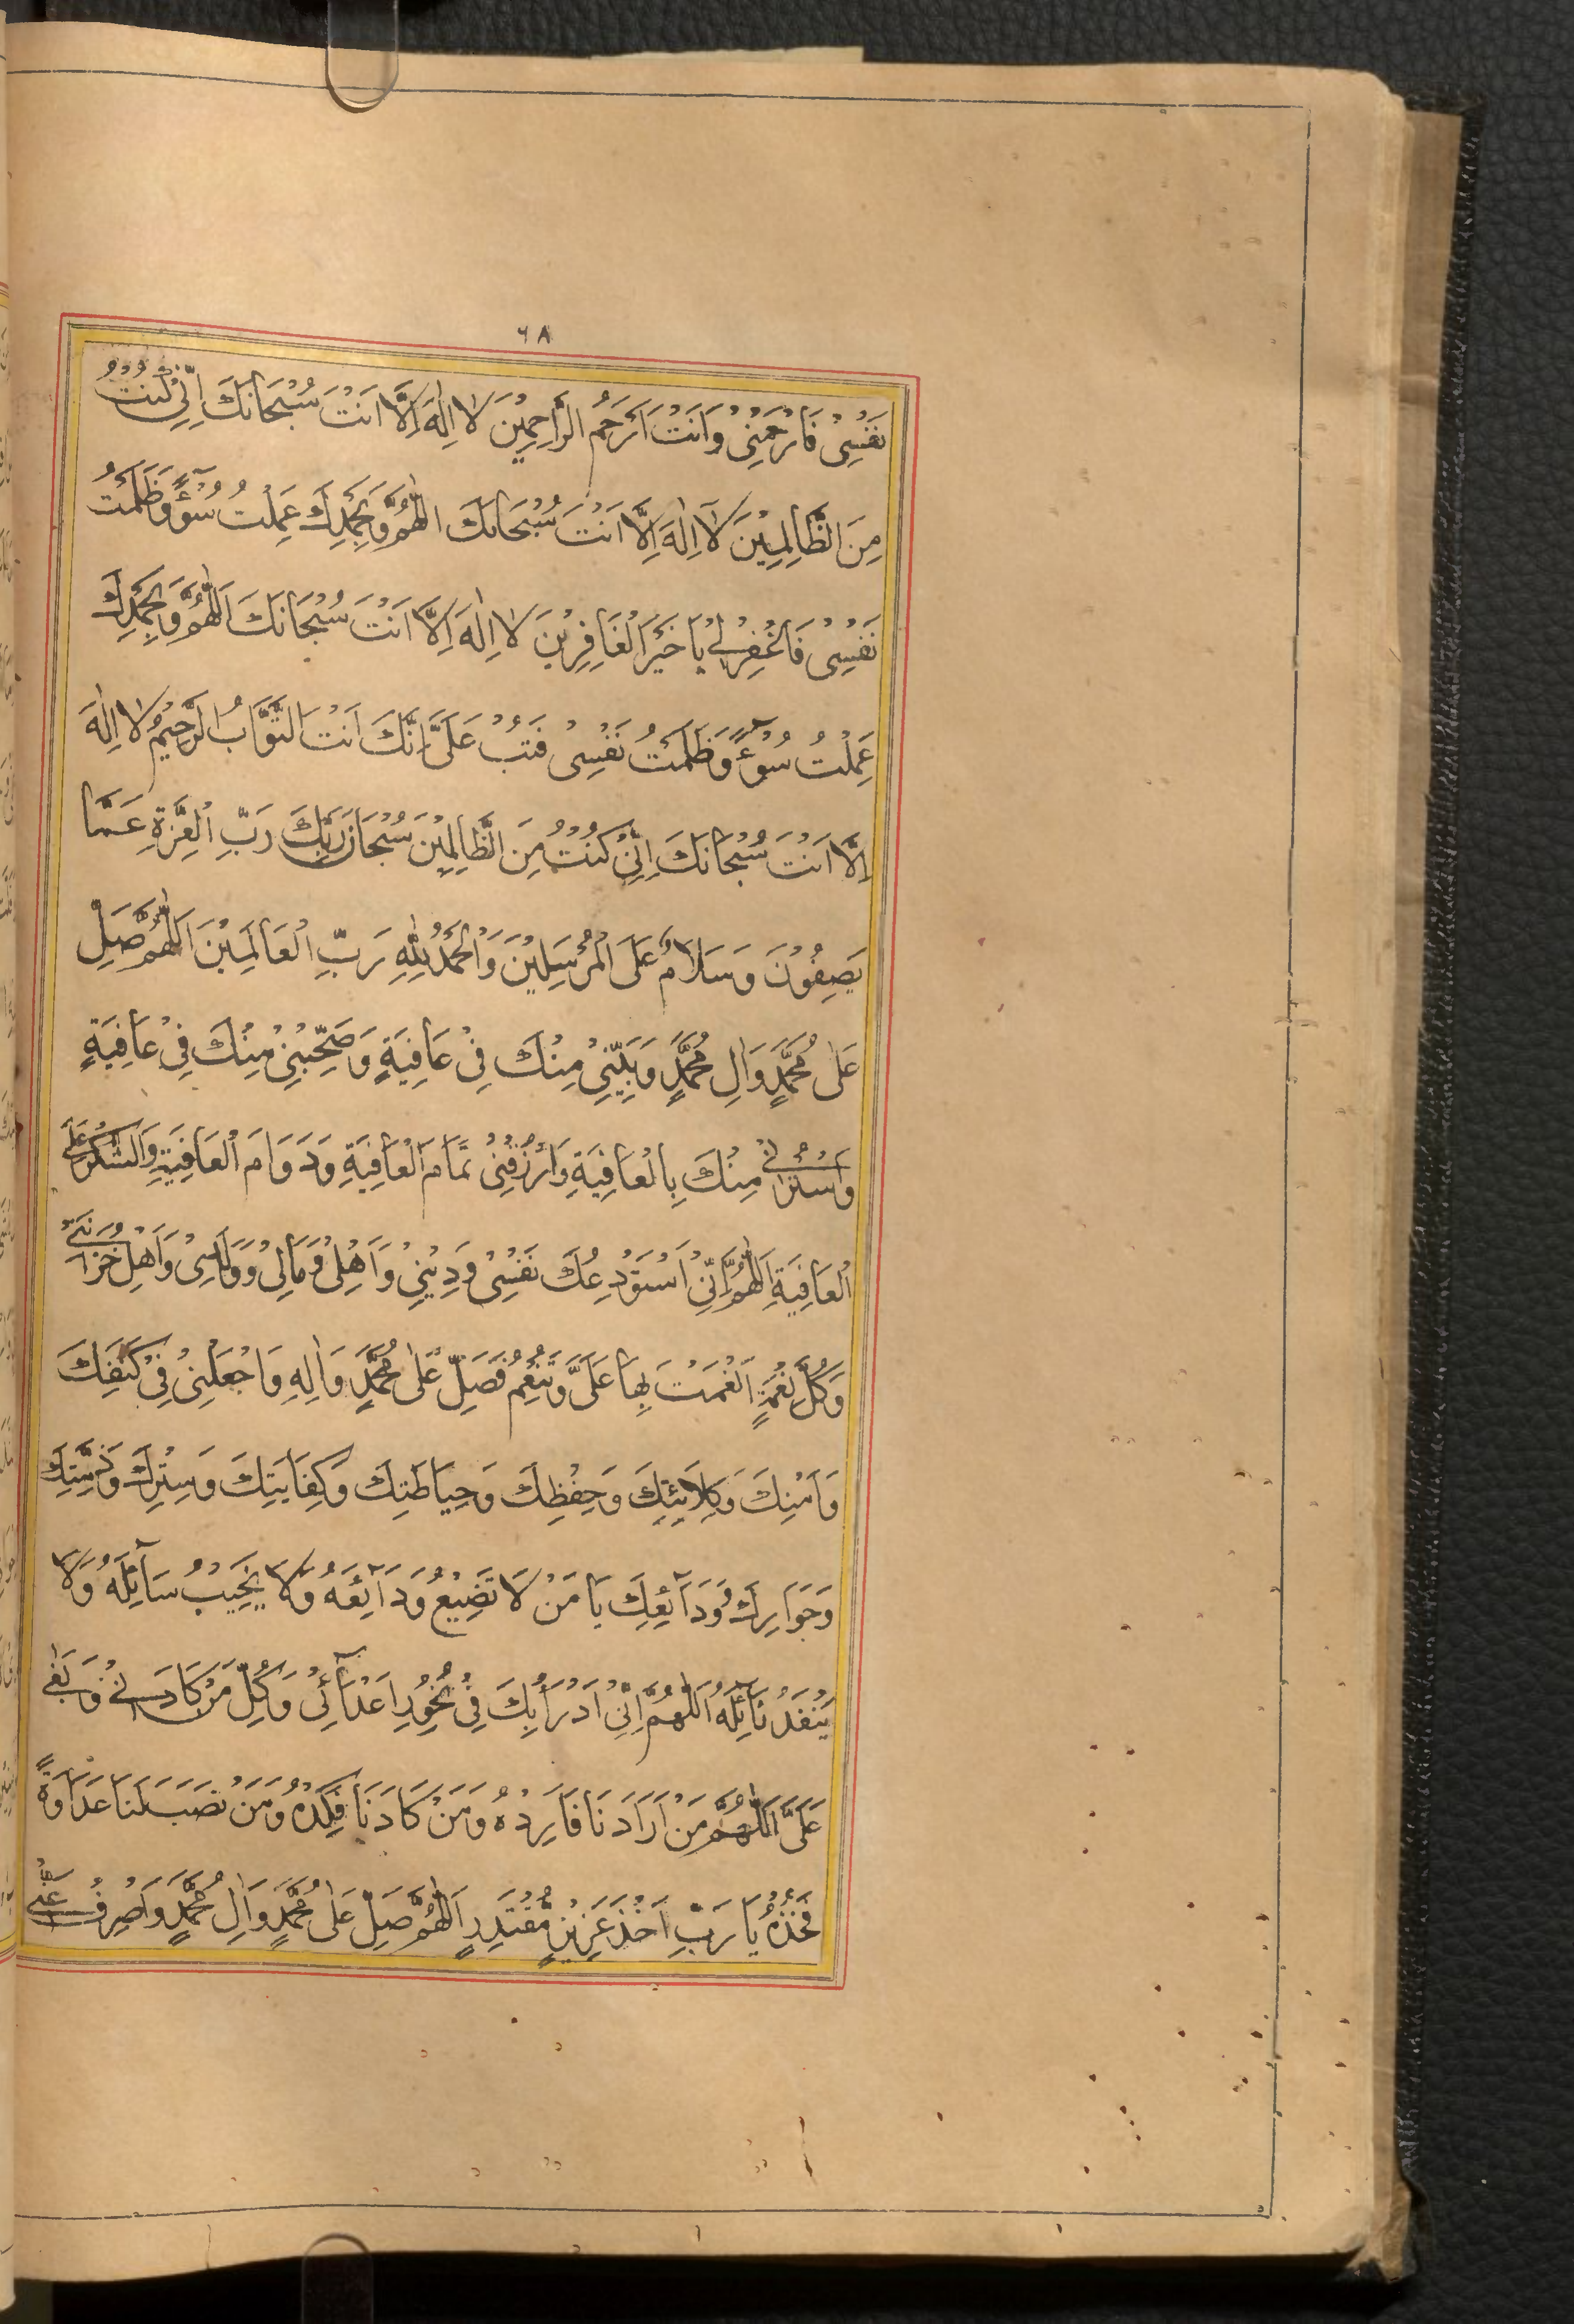 ٦٨
نَفْسِیْ فَارْحَمْنِیْ وَاَنْتَ اَرْحَمُ الرَّاحِمِیْنَ لَا اِلٰهَ اِلَّا اَنْتَ سُبْحَانَكَ اِنِّیْ كُنْتُ
مِنَ الظَّالِمِیْنَ لَا اِلٰهَ اِلَّا اَنْتَ سُبْحَانَكَ اللّٰهُمَّ وَبِحَمْدِكَ عَمِلْتُ سُوْٓءً وَظَلَمْتُ
نَفْسِیْ فَاغْفِرْ لِیْ یَا خَیْرَ الْغَافِرِیْنَ لَا اِلٰهَ اِلَّا اَنْتَ سُبْحَانَكَ اَللّٰهُمَّ وَبِحَمْدِكَ
عَمِلْتُ سُوْٓءً وَظَلَمْتُ نَفْسِیْ فَتُبْ عَلَیَّ اِنَّكَ اَنْتَ التَّوَّابُ الرَّحِیْمُ لَا اِلٰهَ
اِلَّا اَنْتَ سُبْحَانَكَ اِنِّیْ كُنْتُ مِنَ الظَّالِمِیْنَ سُبْحَانَ رَبِّكَ رَبِّ الْعِزَّةِ عَمَّا
یَصِفُوْنَ وَسَلَامٌ عَلَی الْمُرْسَلِیْنَ وَالْحَمْدُ لِلّٰهِ رَبِّ الْعَالَمِیْنَ اَللّٰهُمَّ صَلِّ
عَلٰی مُحَمَّدٍ وَاٰلِ مُحَمَّدٍ وَبَیِّتْنِیْ مِنْكَ فِیْ عَافِیَةٍ وَصَبِّحْنِیْ مِنْكَ فِیْ عَافِیَةٍ
وَاسْتُرْنِیْ مِنْكَ بِالْعَافِیَةِ وَارْزُقْنِیْ تَمَامَ الْعَافِیَةِ وَدَوَامَ الْعَافِیَةِ وَالشُّكْرَ عَلَی
الْعَافِیَةِ اَللّٰهُمَّ اِنِّیْ اَسْتَوْدِعُكَ نَفْسِیْ وَدِیْنِیْ وَاَهْلِیْ وَمَالِیْ وَوَلَدِیْ وَاَهْلَ حُزَانَتِیْ
وَكُلَّ نِعْمَةٍ اَنْعَمْتَ بِهَا عَلَیَّ وَتُنْعِمُ فَصَلِّ عَلٰی مُحَمَّدٍ وَاٰلِهِ وَاجْعَلْنِیْ فِیْ كَنَفِكَ
وَاَمْنِكَ وَكِلَائَتِكَ وَحِفْظِكَ وَحِیَاطَتِكَ وَكِفَایَتِكَ وَسِتْرِكَ وَذِمَّتِكَ
وَجَوَارِكَ وَوَدَآئِعِكَ یَا مَنْ لَا تَضِیْعُ وَدَآئِعُهُ وَلَا یَخِیْبُ سَآئِلُهُ وَلَا
یَنْفَدُ نَآئِلُهُ اَللّٰهُمَّ اِنِّیْ اَدْرَاُبِكَ فِیْ نُحُوْرِ اَعْدَآئِیْ وَكُلِّ مَنْ كَادَنِیْ وَبَغٰی
عَلَیَّ اَللّٰهُمَّ مَنْ اَرَادَنَا فَاَرِدْهُ وَمَنْ كَادَنَا فَكِدْهُ وَمَنْ نَصَبَ لَنَا عَدَاوَةً
فَخُذْهُ یَا رَبِّ اَخْذَ عَزِیْزٍ مُّقْتَدِرٍ اَللّٰهُمَّ صَلِّ عَلٰی مُحَمَّدٍ وَاٰلِ مُحَمَّدٍ وَاصْرِفْ عَنِّیْ